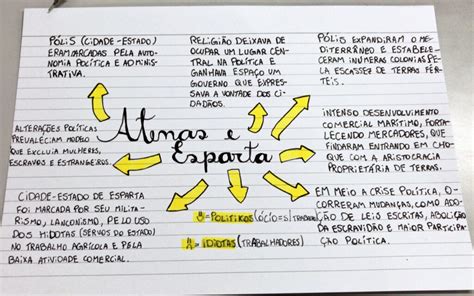 PÓLIS (CIDADE-ESTADO)
ERAM MARCADAS PELA AUTO
NOMIA POLÍTICA E ADMINIS-
TRATIVA.
RELIGIÃO DEIXAVA DE
OCUPAR UM LUGAR CEN-
TRAL NA POLÍTICA E
GANHAVA ESPAÇO UM
GOVERNO QUE EXPRES
SAVA A VONTADE DOS CI-
DADÃOS.
PÓLIS EXPANDIRAM O ME-
DITERRÂNEO E ESTABELE-
CERAM INÚMERAS COLONIAS PE-
LA ESCASSEZ DE TERRAS FÉR-
TEIS.
Atenas e
Esparta
ALTERAÇÕES POLÍTICAS
PREVALECIAM MODELO
QUE EXCLUIA MULHERES,
ESCRAVOS E ESTRANGEIROS.
INTENSO DESENVOLVIMENTO
COMERCIAL MARÍTIMO, FORTA-
LECENDO MERCADORES, QUE
FINDARAM ENTRANDO EM CHO-
QUE COM A ARISTOCRACIA
PROPRIETÁRIA DE TERRAS.
CIDADE-ESTADO DE ESPARTA
FOI MARCADA POR SEU MILITA-
RISMO, LANCONISMO, PE LO USO
DOS HIDOTAS (SERVOS DO ESTADO)
NO TRABALHO AGRÍCOLA E PELA
BAIXA ATIVIDADE COMERCIAL.
= POLITIKOS
= IDIOTAS (TRABALHADORES)
EM MEIO A CRISE POLÍTICA, O-
CORRERAM MUDANÇAS, COMO ADO-
ÇÃO DE LEIS ESCRITAS, ABOLIÇÃO
DA ESCRAVIDÃO E MAIOR PARTICIPA
ÇÃO POLÍTICA.